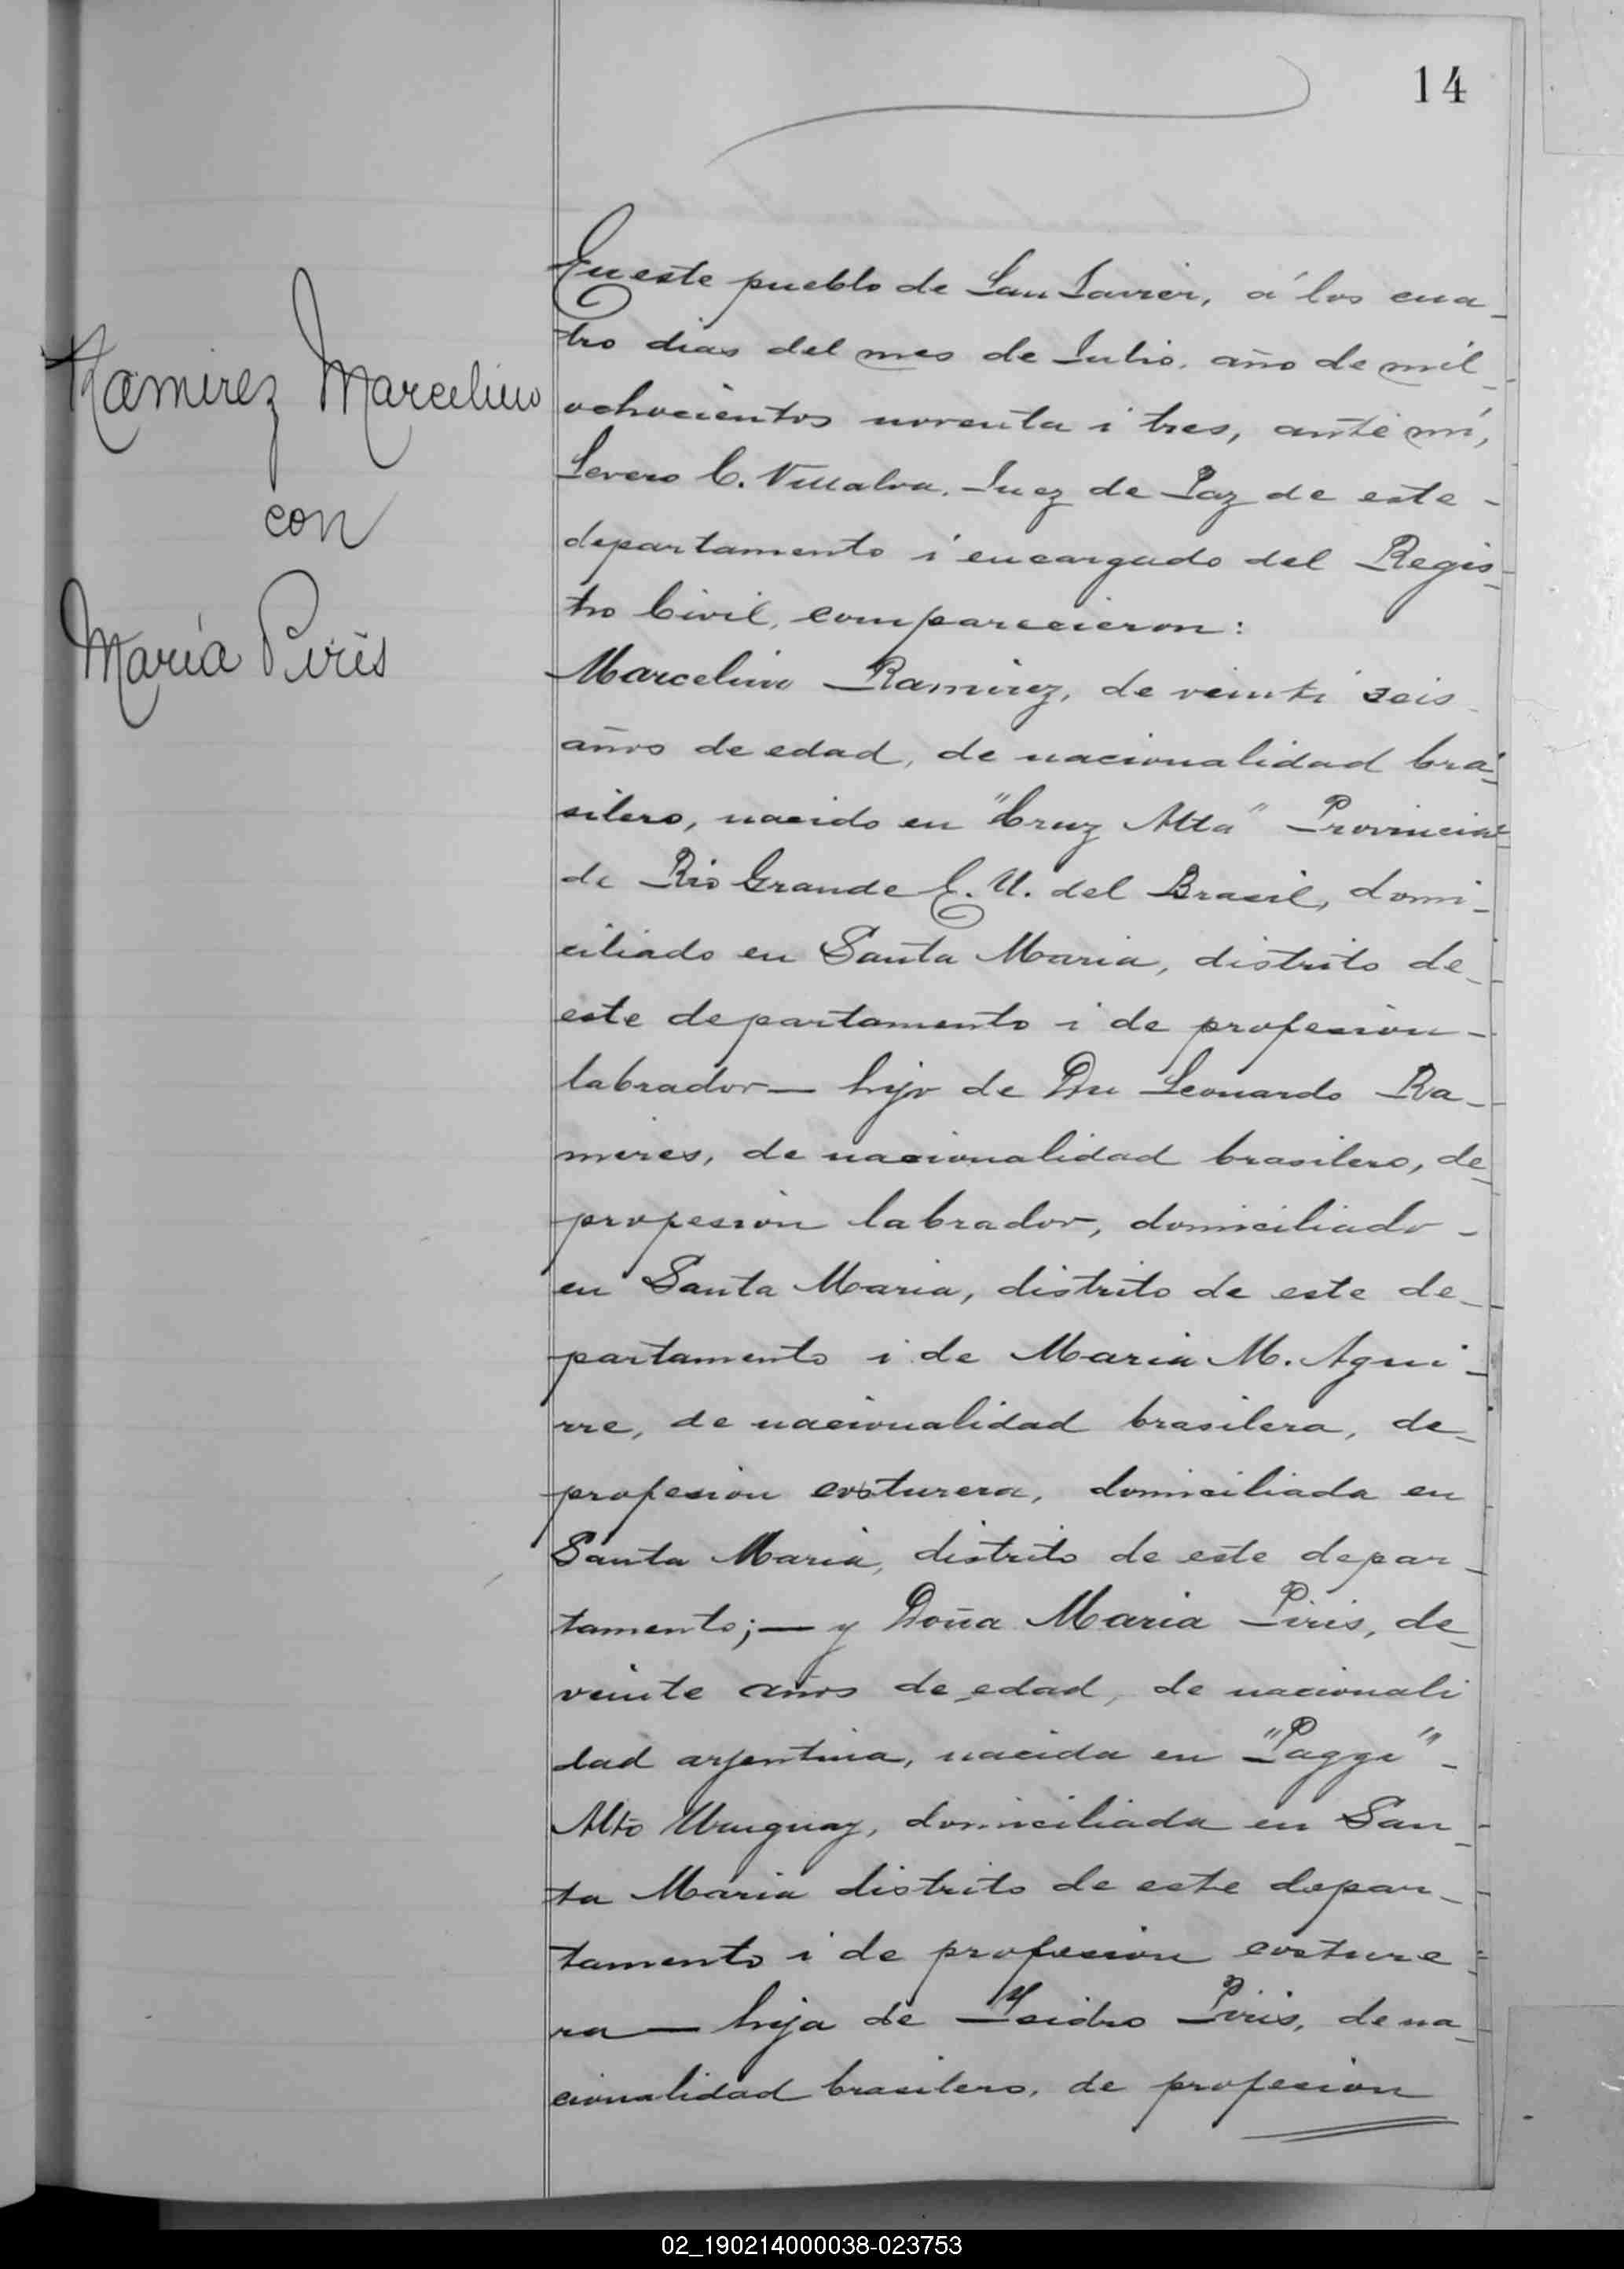 14
Ramirez Marcelino
con
María Piris
En este pueblo de San Javier, á los cua_
tro dias del mes de Julio, año de mil_
ochocientos noventa i tres, ante mí,
Severo C. Villalva, Juez de Paz de este -
departamento i encargado del Regis_
tro Civil, comparecieron:
Marcelino Ramirez, de veinti seis
años de edad, de nacionalidad bra_
silero, nacido en "Cruz Alta" Provincia
de Rio Grande E. U. del Brasil, domi_
ciliado en Santa Maria, distrito de_
este departamento i de profesion -
labrador — hijo de Dn Leonardo Ra_
mires, de nacionalidad brasilero, de_
profesion labrador, domiciliado -
en Santa Maria, distrito de este de_
partamento i de Maria M. Agui_
rre, de nacionalidad brasilera, de_
profesion costurera, domiciliada en
Santa Maria, distrito de este depar_
tamento; — y Doña Maria Piris, de_
veinte años de edad, de nacionali
dad arjentina, nacida en "Paggi" -
Alto Uruguay, domiciliada en San_
ta Maria distrito de este depar_
tamento i de profesion costure_
ra — hija de Isidro Piris, de na_
cionalidad brasilero, de profesion
02_190214000038-023753